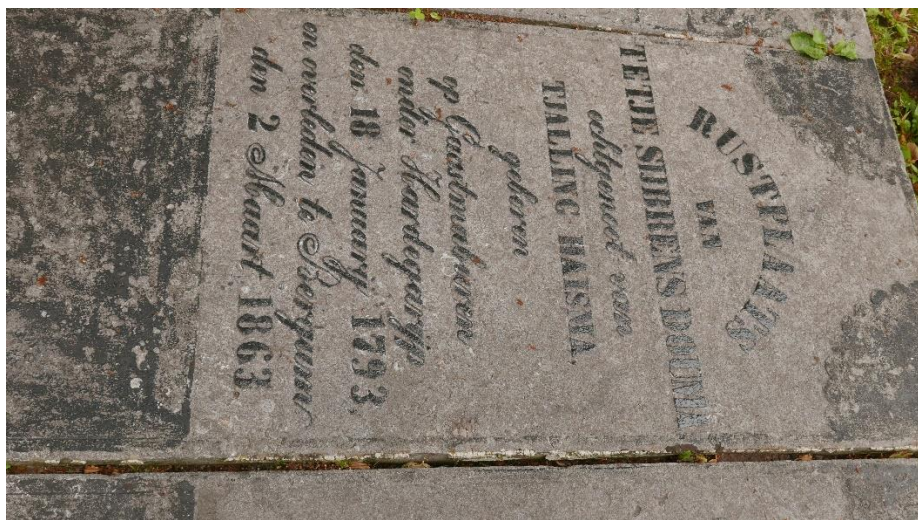 RUSTPLAATS
VAN
TETJE SIBBRENS DOUMA
echtgenoot van
TJALLING HAISMA
geboren
op Gaastmaburen
onder Hardegaryp
den 18 January 1793.
en overleden te Bergum
den 2 Maart 1863